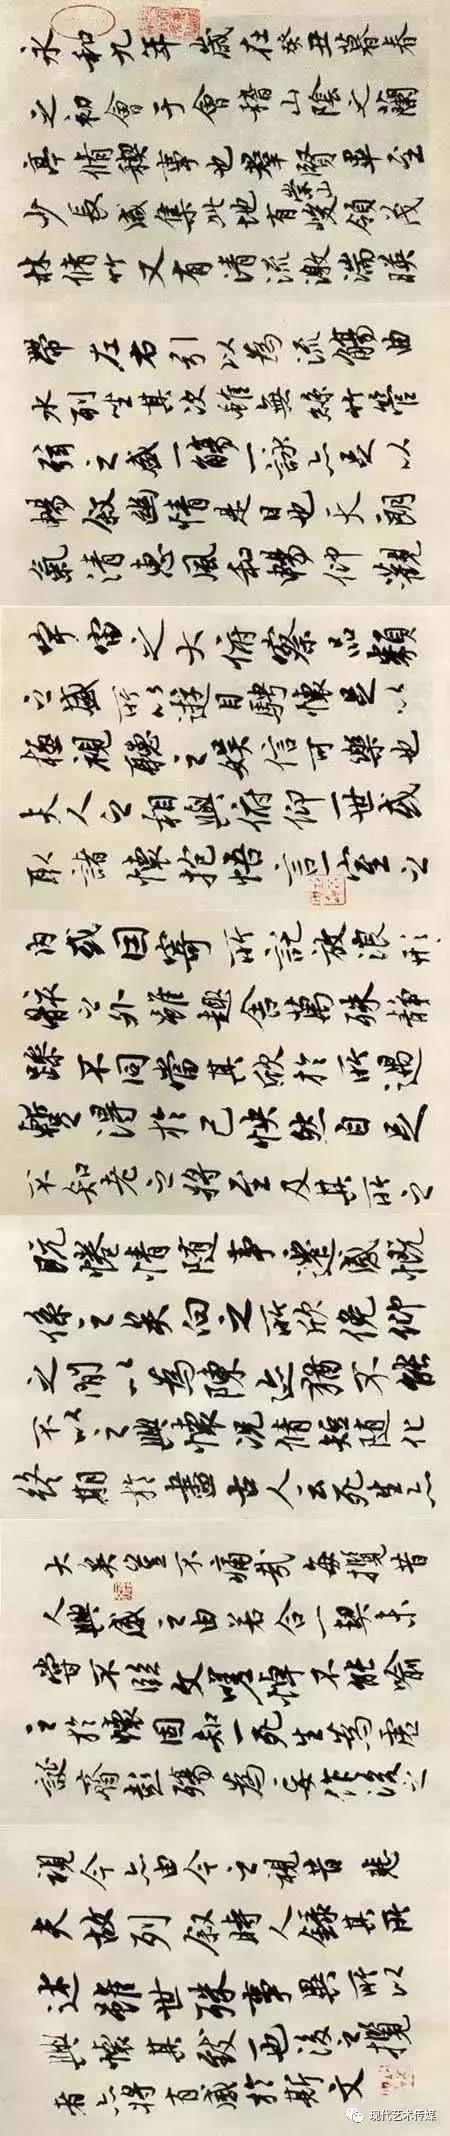 永和九年歲在癸丑暮春
之初會于會稽山陰之蘭
亭脩稧事也羣賢畢至
少長咸集此地有崇山峻領茂
林脩竹又有清流激湍暎
帶左右引以為流觴曲
水列坐其次雖無絲竹管
弦之盛一觴一詠亦足以
暢敘幽情是日也天朗
氣清惠風和暢仰觀
宇宙之大俯察品類
之盛所以遊目騁懷足以
極視聽之娛信可樂也
夫人之相與俯仰一世或
取諸懷抱悟言一室之
內或因寄所託放浪形
骸之外雖趣舍萬殊靜
躁不同當其欣於所遇
暫得於己怏然自足
不知老之將至及其所之
既惓情隨事遷感慨
係之矣向之所欣俛仰
之閒以為陳迹猶不能
不以之興懷況脩短隨化
終期於盡古人云死生亦
大矣豈不痛哉每攬昔
人興感之由若合一契未
嘗不臨文嗟悼不能喻
之於懷固知一死生為虛
誕齊彭殤為妄作後之
視今亦由今之視昔悲
夫故列敘時人錄其所
述雖世殊事異所以
興懷其致一也後之攬
者亦將有感於斯文
现代艺术传媒